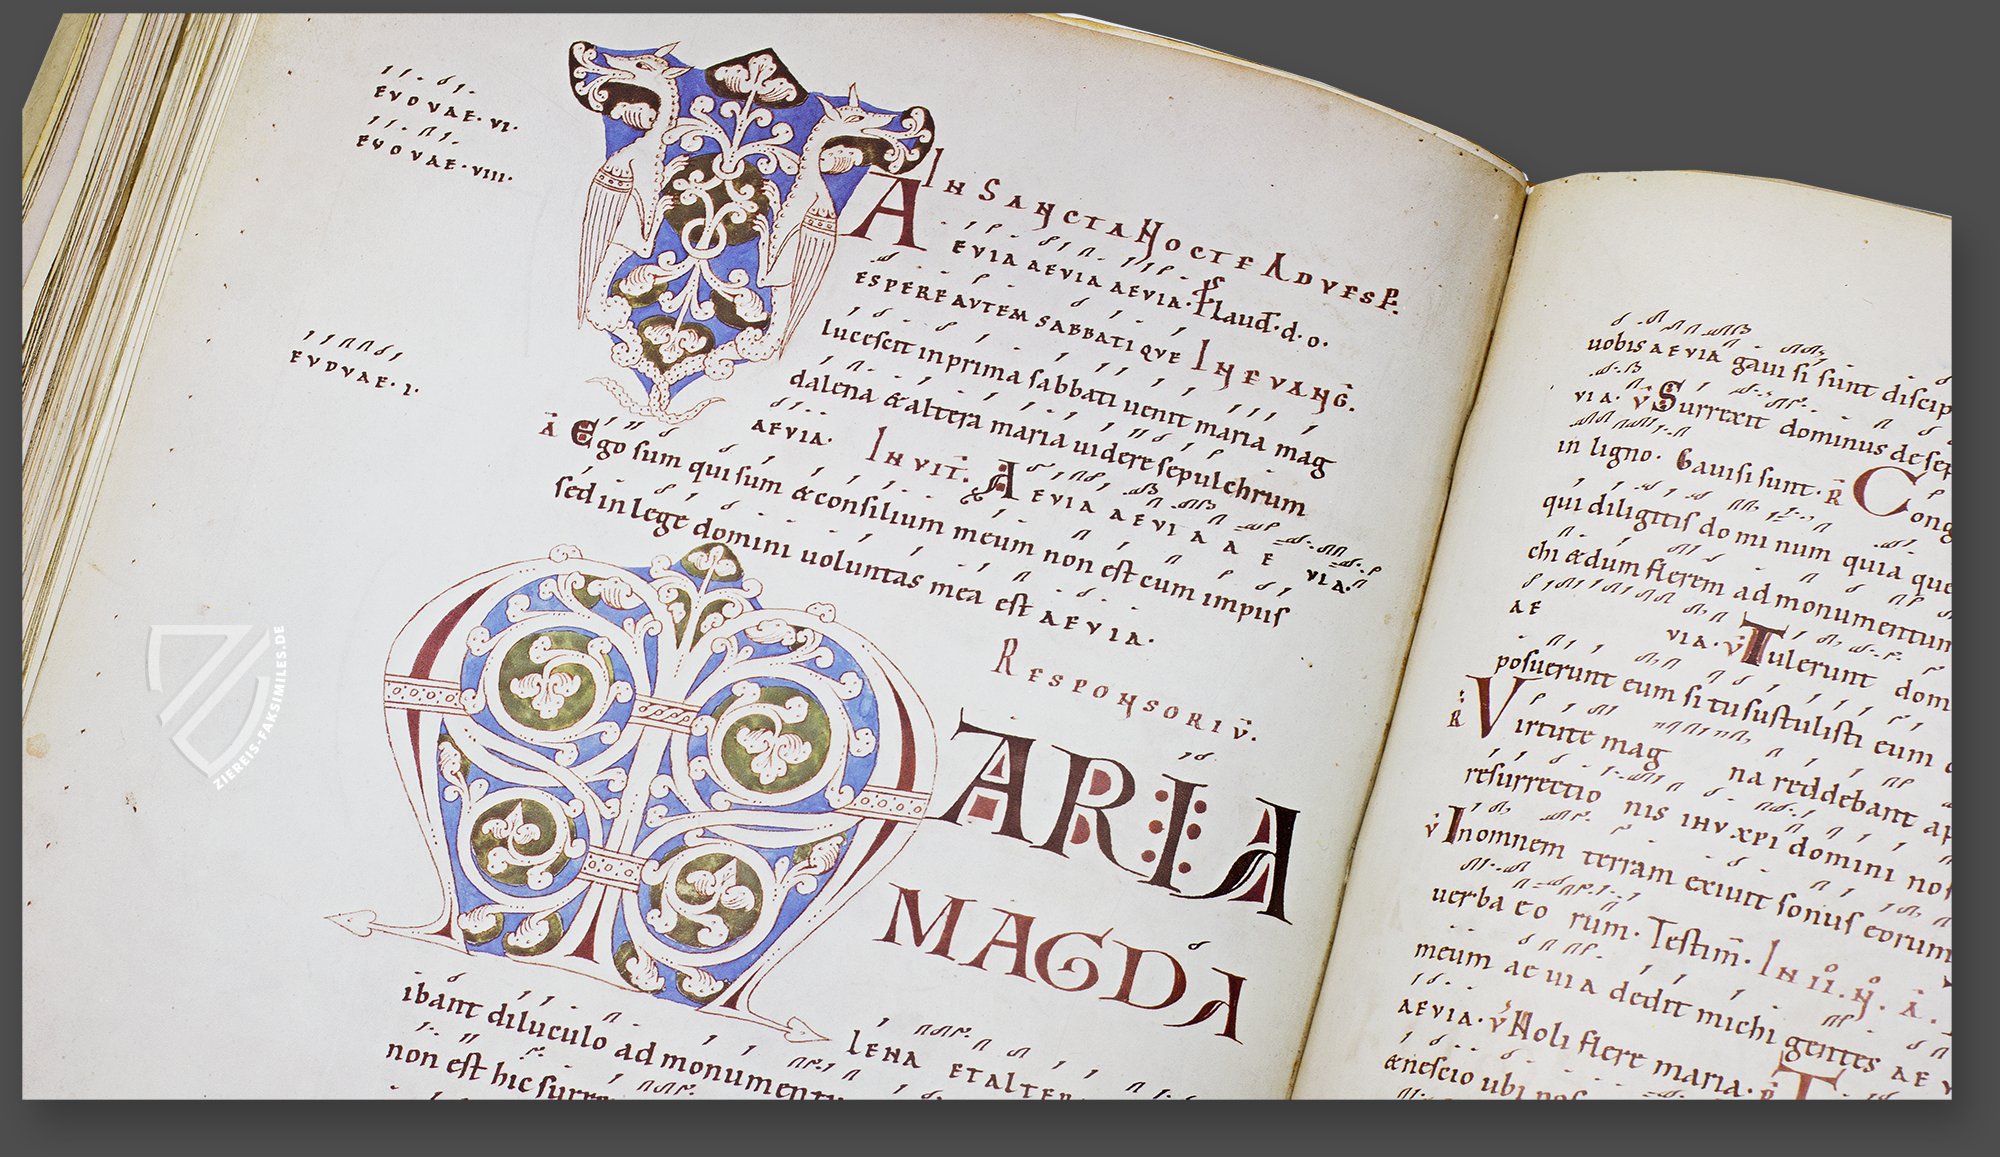 EVOVAE·VI·
EVOVAE·VIII·
IN SANCTA NOCTE AD VESP.
A EVIA AEVIA AEVIA· Ps Laud·d·o·
V ESPERE AVTEM SABBATI QVE IN EVANG.
lucescit in prima sabbati uenit maria mag
dalena & altera maria uidere sepulchrum
EVOVAE·I·
AEVIA· INVIT. A EVIA AEVI A A E VIA·
A Ego sum qui sum & consilium meum non est cum impiis
sed in lege domini uoluntas mea est AEVIA·
RESPONSORIV̄·
MARIA
MAGDA
LENA ET ALTER
ibant diluculo ad monumen
non est hic surre
uobis AEVIA gauisi sunt discip
VIA· V Surrexit dominus de sep
in ligno· Gauisi sunt· R Cong
qui diligitis dominum quia que
chi & dum flerem ad monumentum
AE VIA· V Tulerunt dom
posuerunt eum si tu sustulisti eum
R Virtute mag na reddebant ap
resurrectio nis IHV XPI domini nos
V In omnem terram exiuit sonus eorum
uerba eo rum· Testim̄· IN II·N· A·
meum ac uia dedit michi gentes AE V
AEVIA· V Noli flere maria· R T
& nescio ubi pos
ZIEREIS-FAKSIMILES.DE